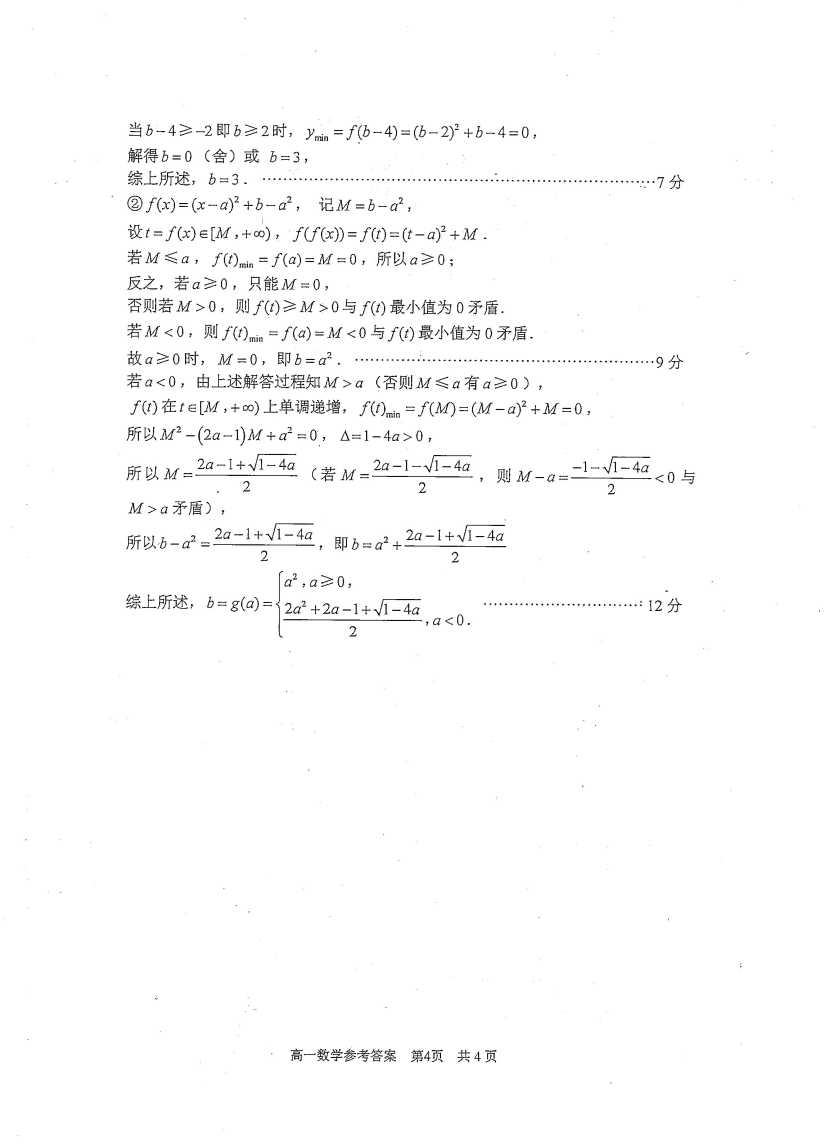 当b-4≥-2即b≥2时，y_min=f(b-4)=(b-2)²+b-4=0，
解得b=0（舍）或 b=3，
综上所述，b=3．……………………………………………………7分
②f(x)=(x-a)²+b-a²， 记M=b-a²，
设t=f(x)∈[M,+∞)，f(f(x))=f(t)=(t-a)²+M．
若M≤a，f(t)_min=f(a)=M=0，所以a≥0；
反之，若a≥0，只能M=0，
否则若M>0，则f(t)≥M>0与f(t)最小值为0矛盾．
若M<0，则f(t)_min=f(a)=M<0与f(t)最小值为0矛盾．
故a≥0时，M=0，即b=a²．……………………………………………9分
若a<0，由上述解答过程知M>a（否则M≤a有a≥0），
f(t)在t∈[M,+∞)上单调递增，f(t)_min=f(M)=(M-a)²+M=0，
所以M²-(2a-1)M+a²=0，Δ=1-4a>0，
所以M=(2a-1+√(1-4a))/2（若M=(2a-1-√(1-4a))/2，则M-a=(-1-√(1-4a))/2<0与
M>a矛盾），
所以b-a²=(2a-1+√(1-4a))/2，即b=a²+(2a-1+√(1-4a))/2
综上所述，b=g(a)={a²,a≥0， (2a²+2a-1+√(1-4a))/2,a<0． …………………………12分
高一数学参考答案 第4页 共4页